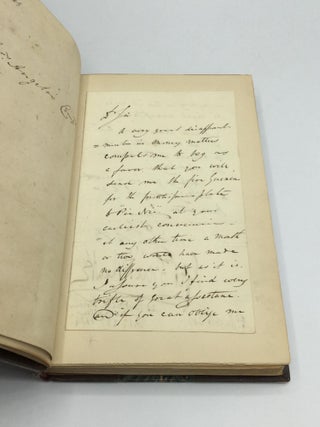 Dr Sir
A very great disappoint-
=ment in money matters
compels me to beg as
a favor that you will
send me the five Guineas
for the frontispiece plate
to at your
earliest convenience –
at any other time a month
or two would have made
no difference. but as it is.
I assure you I find every
trifle of great assistance.
and if you can oblige me